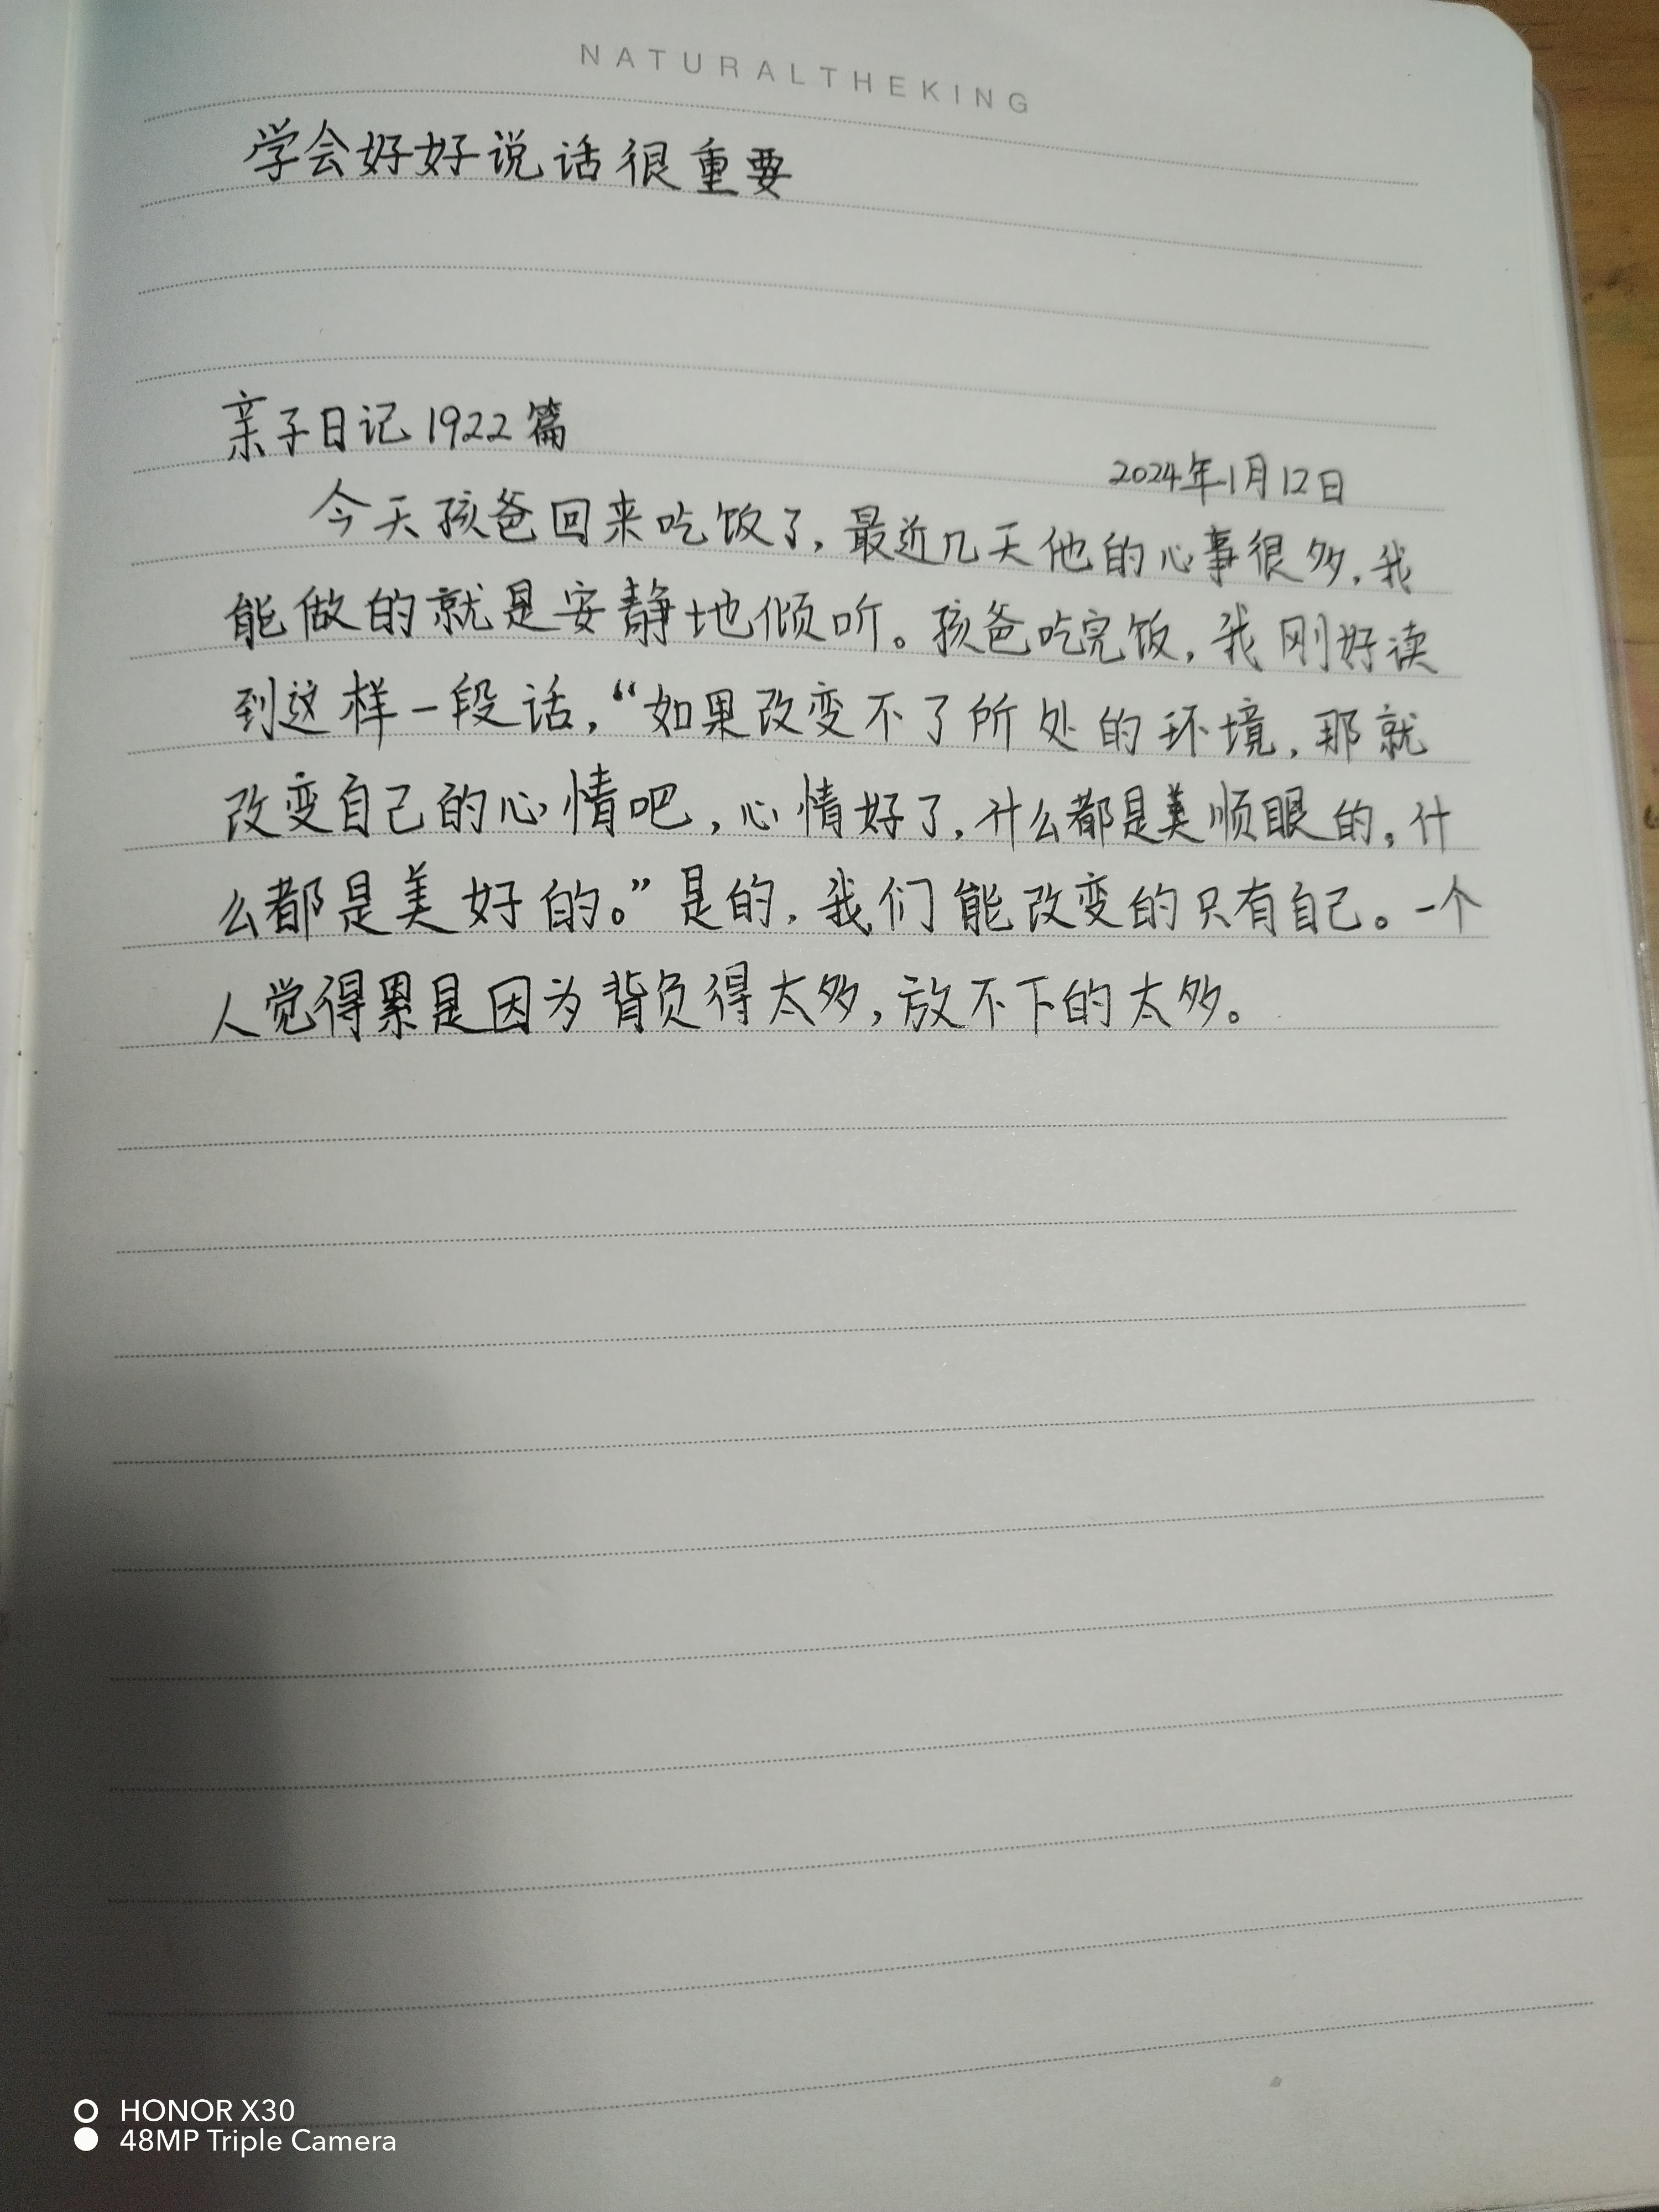 NATURALTHEKING
学会好好说话很重要
亲子日记1922篇
2024年1月12日
今天孩爸回来吃饭了,最近几天他的心事很多,我
能做的就是安静地倾听。孩爸吃完饭,我刚好读
到这样一段话,“如果改变不了所处的环境,那就
改变自己的心情吧,心情好了,什么都是美顺眼的,什
么都是美好的。”是的,我们能改变的只有自己。一个
人觉得累是因为背负得太多,放不下的太多。
HONOR X30
48MP Triple Camera